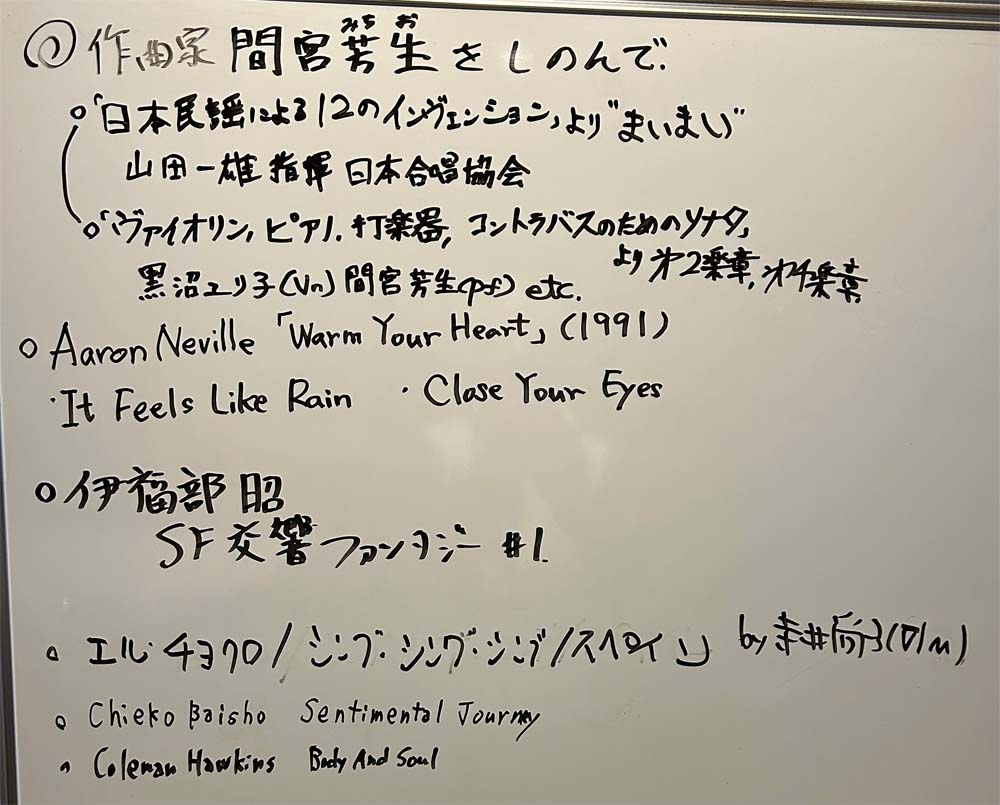 ◎作曲家 間宮芳生をしのんで.
みちお
○「日本民謡による12のインヴェンション」より"まいまい"
山田一雄 指揮 日本合唱協会
○「ヴァイオリン, ピアノ, 打楽器, コントラバスのためのソナタ」
より 第2楽章, 第4楽章
黒沼ユリ子(Vn) 間宮芳生(pf) etc.
○ Aaron Neville 「Warm Your Heart」(1991)
・It Feels Like Rain ・Close Your Eyes
○ 伊福部 昭
SF交響ファンタジー #1.
○ エル・チョクロ/シング・シング・シング/スペイン by
○ Chieko Baisho Sentimental Journey
○ Coleman Hawkins Body And Soul